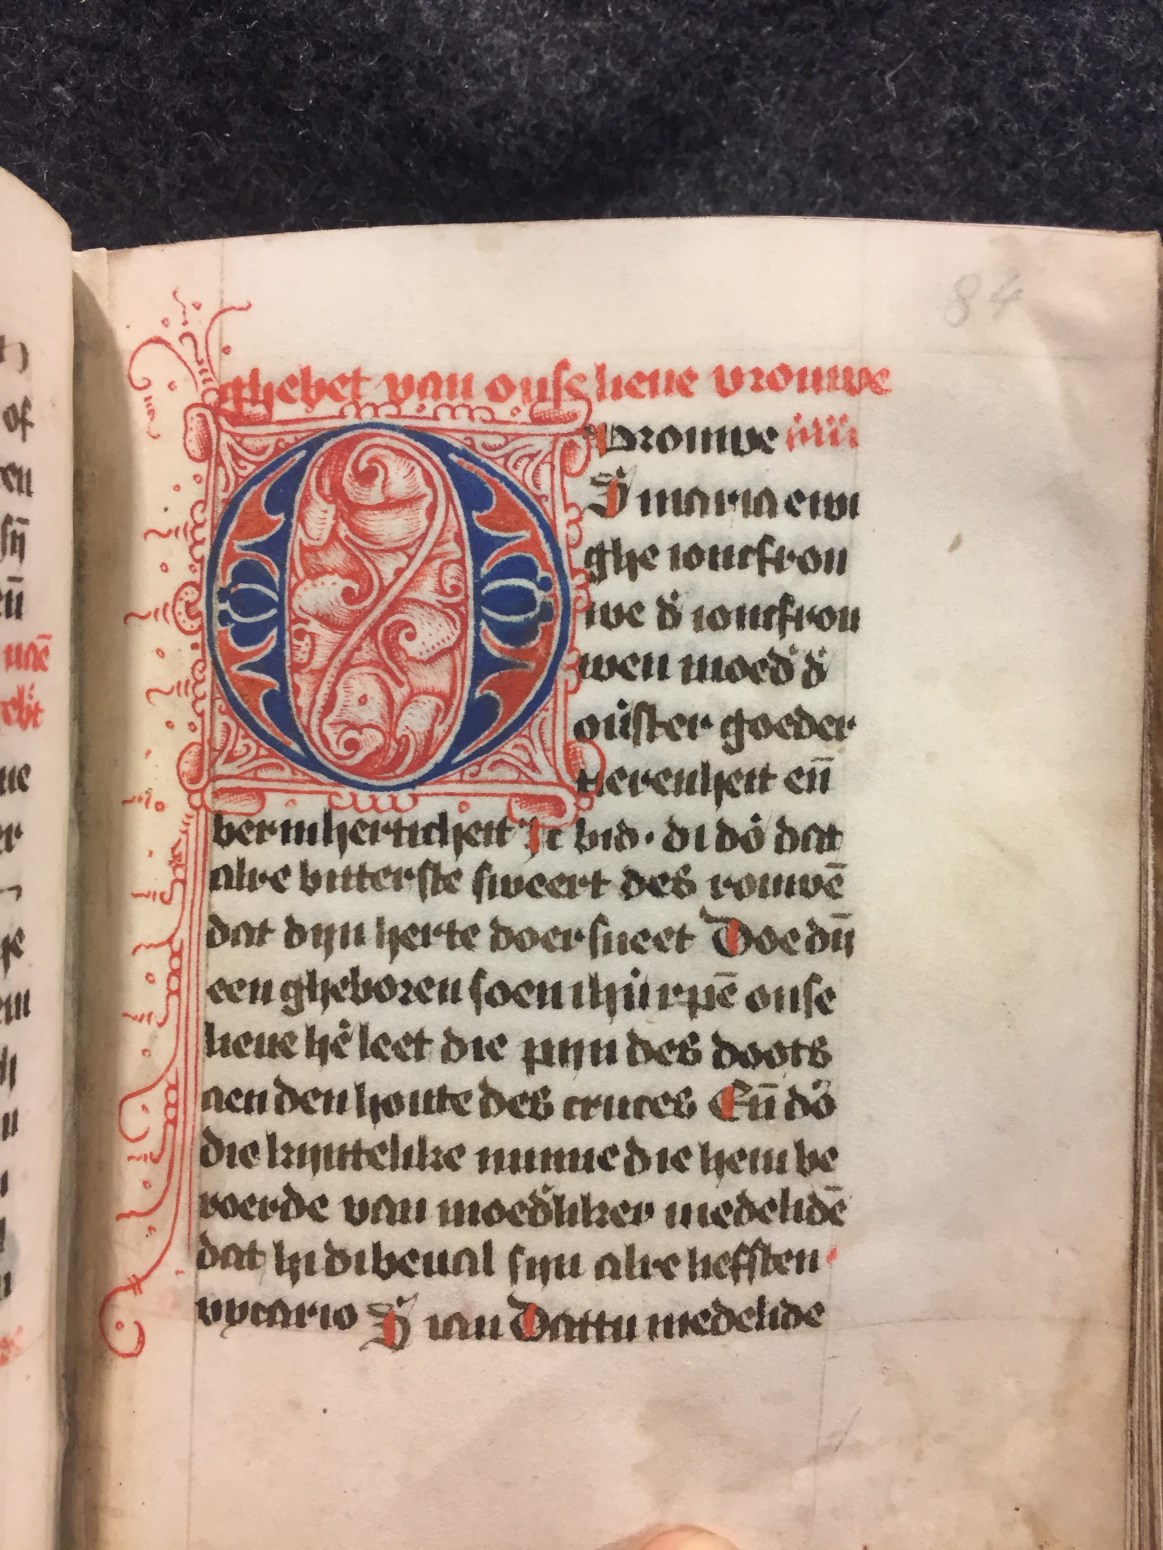 84
ghebet van onse lieue vrouwe
O Vrouwe
S̄ maria ewi
ghe ioncfrou
we d̓ ioncfrou
wen moed̓ d̓
ouerster goeder
tierenheit en̄
bermherticheit Ic bid di do̓ dat
alre bitterste sweert des rouwē
dat dijn herte doersneet Doe dijn
een gheboren soen ihūs xpē onse
lieue hē leet die pijn des doots
aen den houte des cruces En̄ do̓
die kijntelike minne die hem be
roerde van moed̓liker medelidē
dat hi di beual sijn alre liefsten
vycario S̄ ian Dattu medelide
of
en
en̄